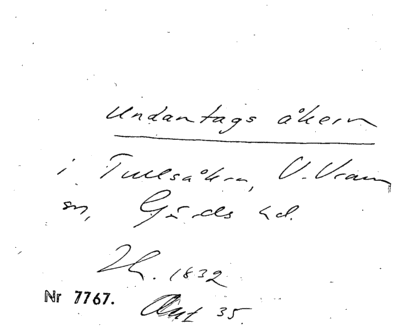 Undantags åkern
i Tullsåkra, V. Vram
sn, Gärds hd.
Lh. 1832
Nr 7767.
Ant 35.